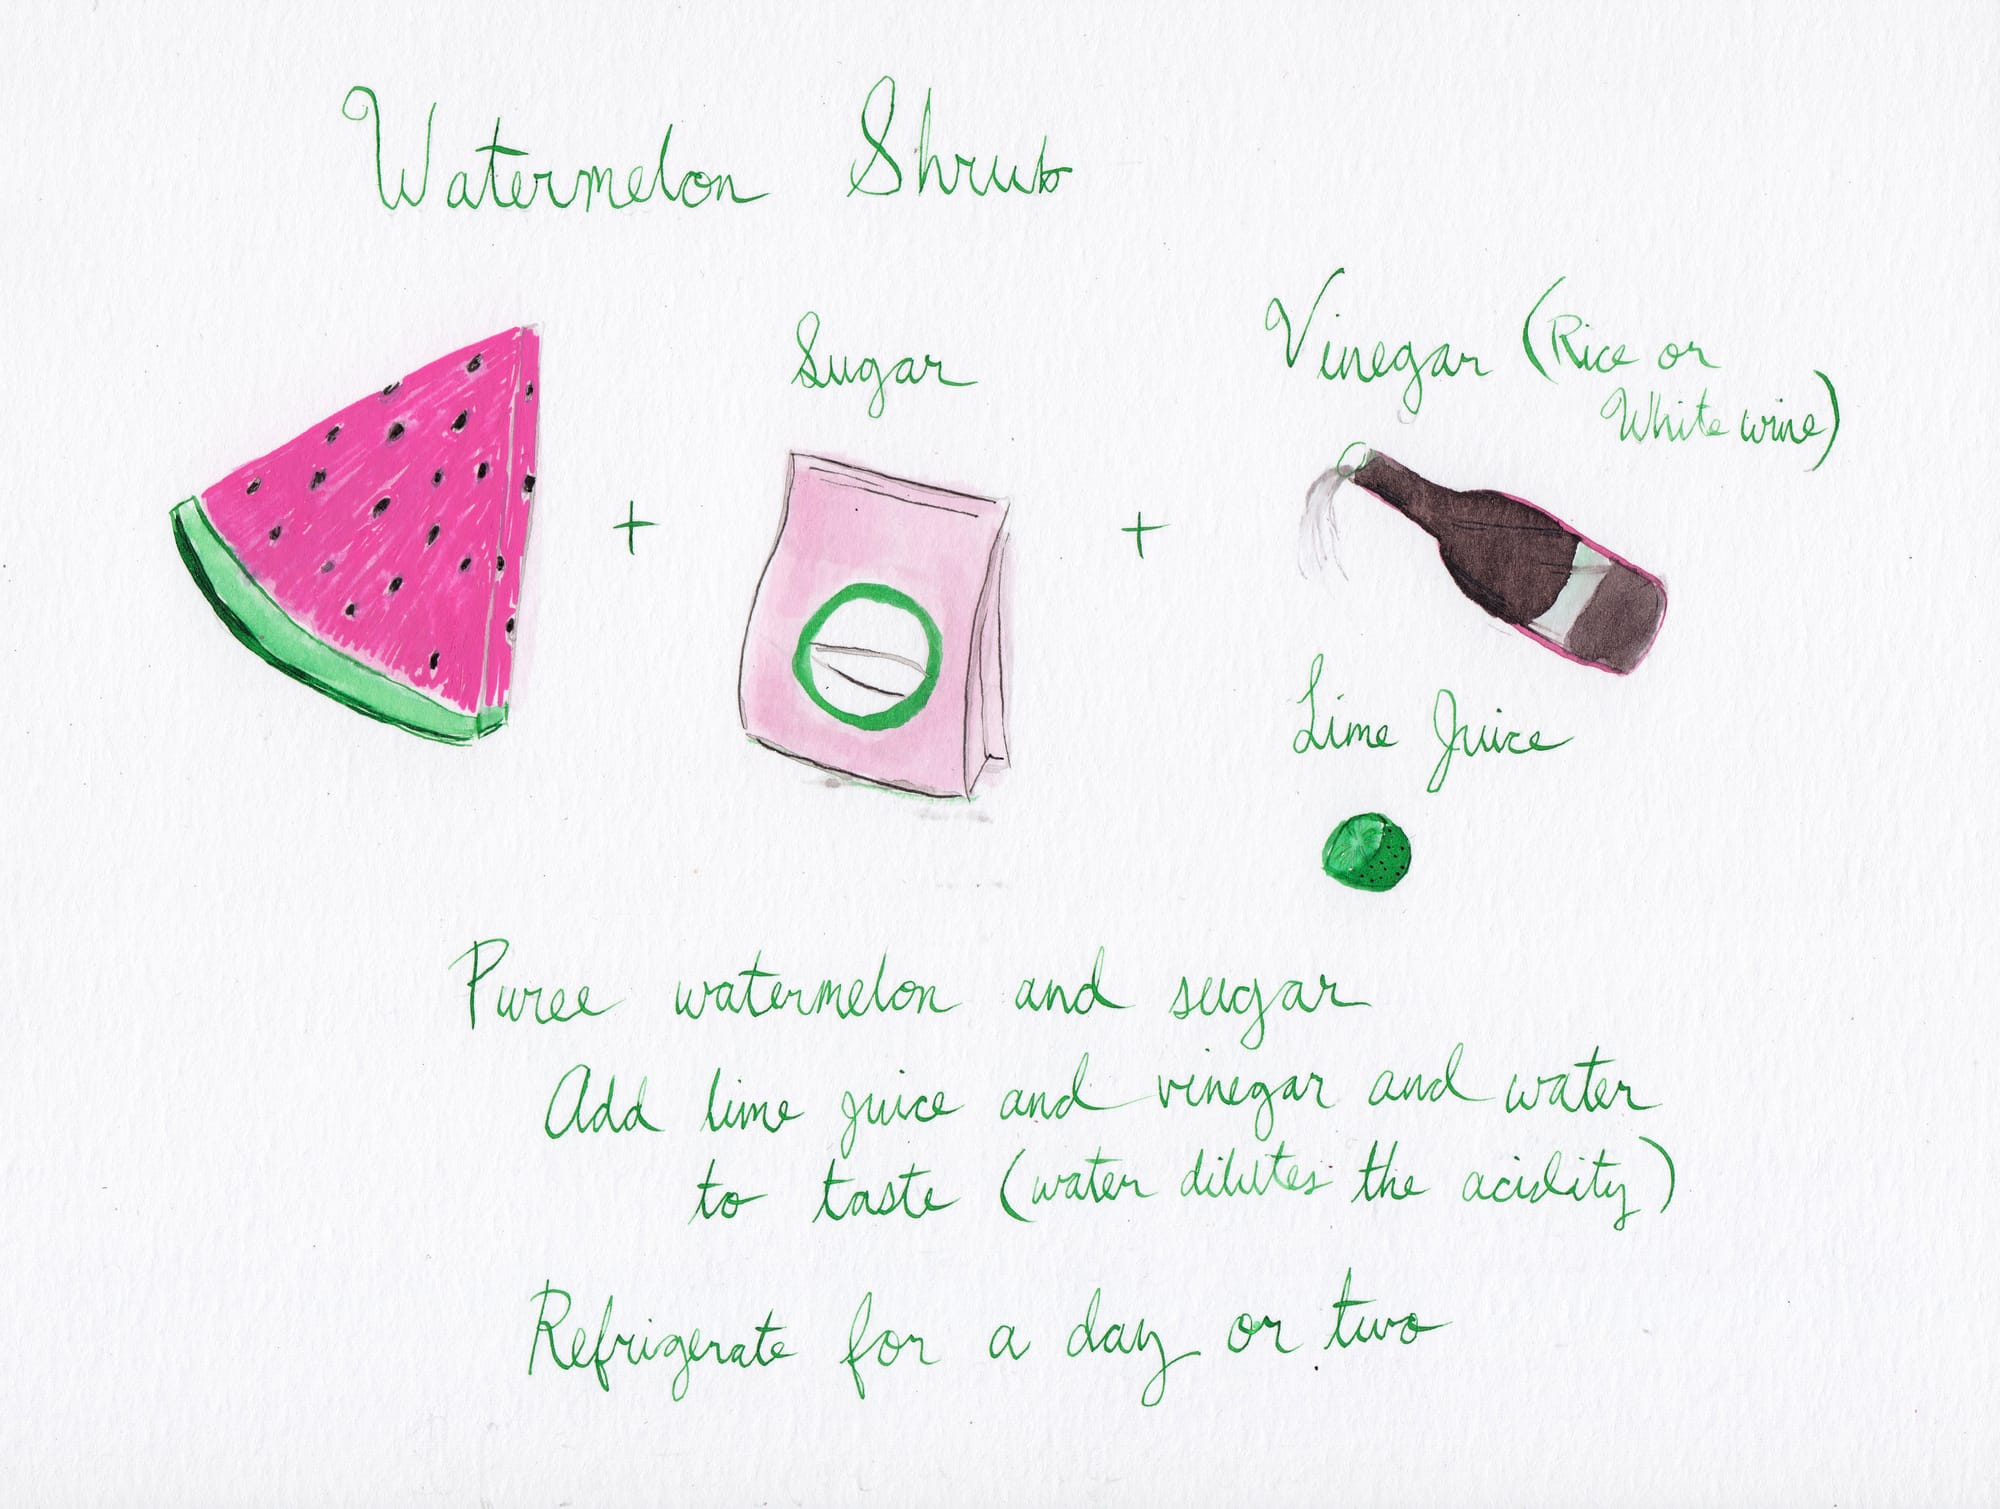 Watermelon Shrub
Sugar
Vinegar (Rice or
White wine)
+
+
Lime Juice
Puree watermelon and sugar
Add lime juice and vinegar and water
to taste (water dilutes the acidity)
Refrigerate for a day or two